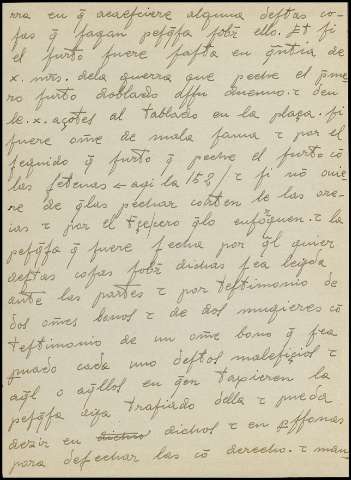 rra en q̃ acaefciere alguna deftas co-
fas q̃ fagan pefq̃fa fobr̃ ello. Et fi
el furto fuere fafta en q̃ntia de
x. mrs. dela guerra que peche el p̃me
ro furto doblado affu duenno. τ den
le .x. açotes al tablado en la plaça. fi
fuere ome de mala fama τ por el
fegundo q̃ furto q̃ peche el furto cõ
las fetenas ← aqi la 152 / τ fi nõ ouie
re de q̃ las pechar corten le las ore-
ias τ por el tçero q̃ lo enforquen. τ la
pefq̃fa q̃ fuere fecha por q̃l quier
deftas cofas fobr̃ dichas fea leyda
ante las partes τ por teftimonio de
dos oms̃ bonos τ de dos mugieres cõ
teftimonio de un ome bono q̃ fea
puado cada uno deftos maleficios τ
aq̃l o aq̃llos en q̃en taxieren la
pefq̃fa aya trafiado della τ pueda
dezir en dichos τ en perffonas
para defechar las cõ derecho. τ man